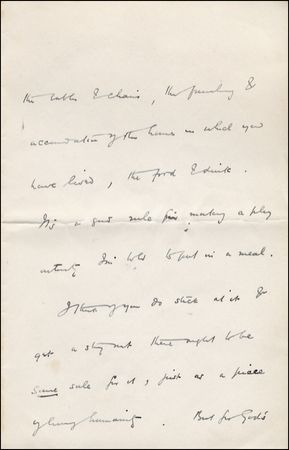 the tables & chairs, the furnishing &
accomodation of the houses in which you
have lived, the food & drink.
It's a good rule for making a play
I'm told to put in a meal.
I think if you do stick at it &
get a story out there ought to be
some sale for it, just as a piece
of living humanity. But for God's